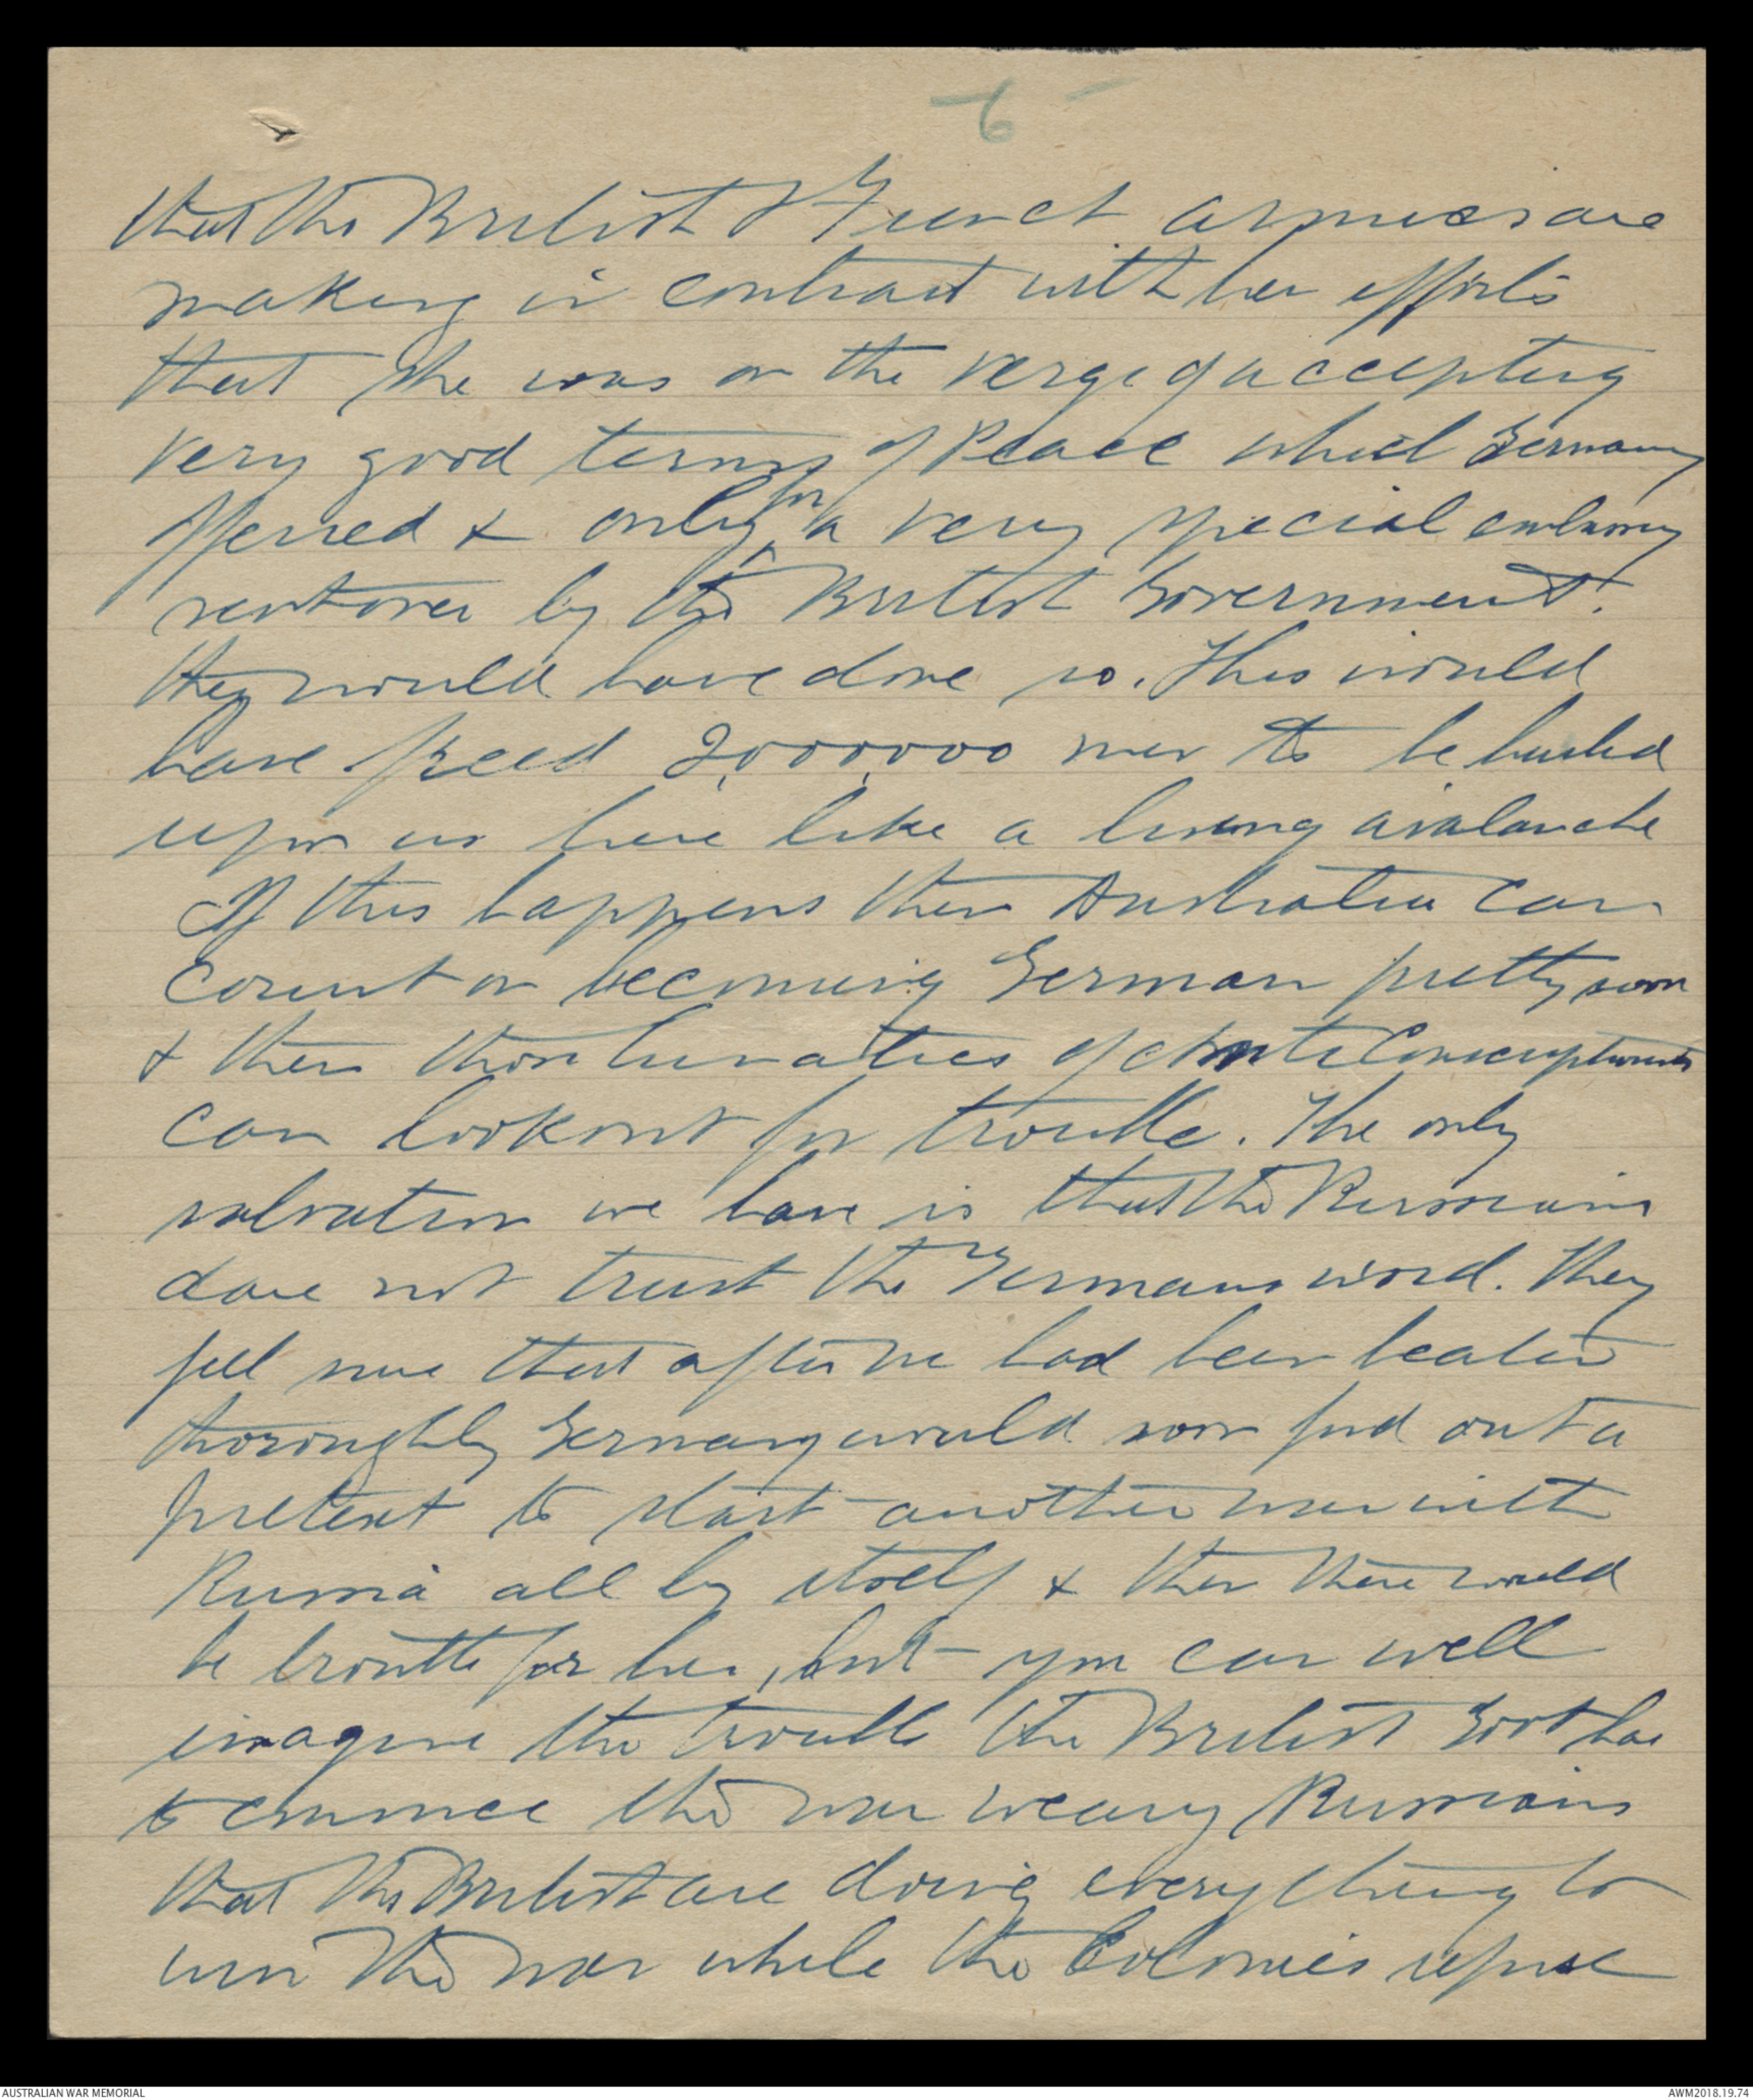 -6-
that the British & French armies are
making in contrast with her efforts
that she was on the verge of accepting
very good terms of Peace which Germany
offerred & only for a very special embassy
sent over by the British Government.
they would have done so. This would
have freed 2,000,000 men to be hurled
upon us here like a living avalanche
If this happens then Australia can
count on becoming German pretty soon
& then those lunatics of Anti Conscriptionists
can lookout for trouble. The only
salvation we have is that the Russians
dare not trust the Germans word. They
feel sure that after we had been beaten
thoroughly Germany would soon find out a
pretext to start another war with
Russia all by itself & then there would
be trouble for her, but you can well
imagine the trouble the British Govt has
to convince the war weary Russians
that the British are doing everything to
win the war while the Colonies refuse
AUSTRALIAN WAR MEMORIAL
AWM2018.19.74